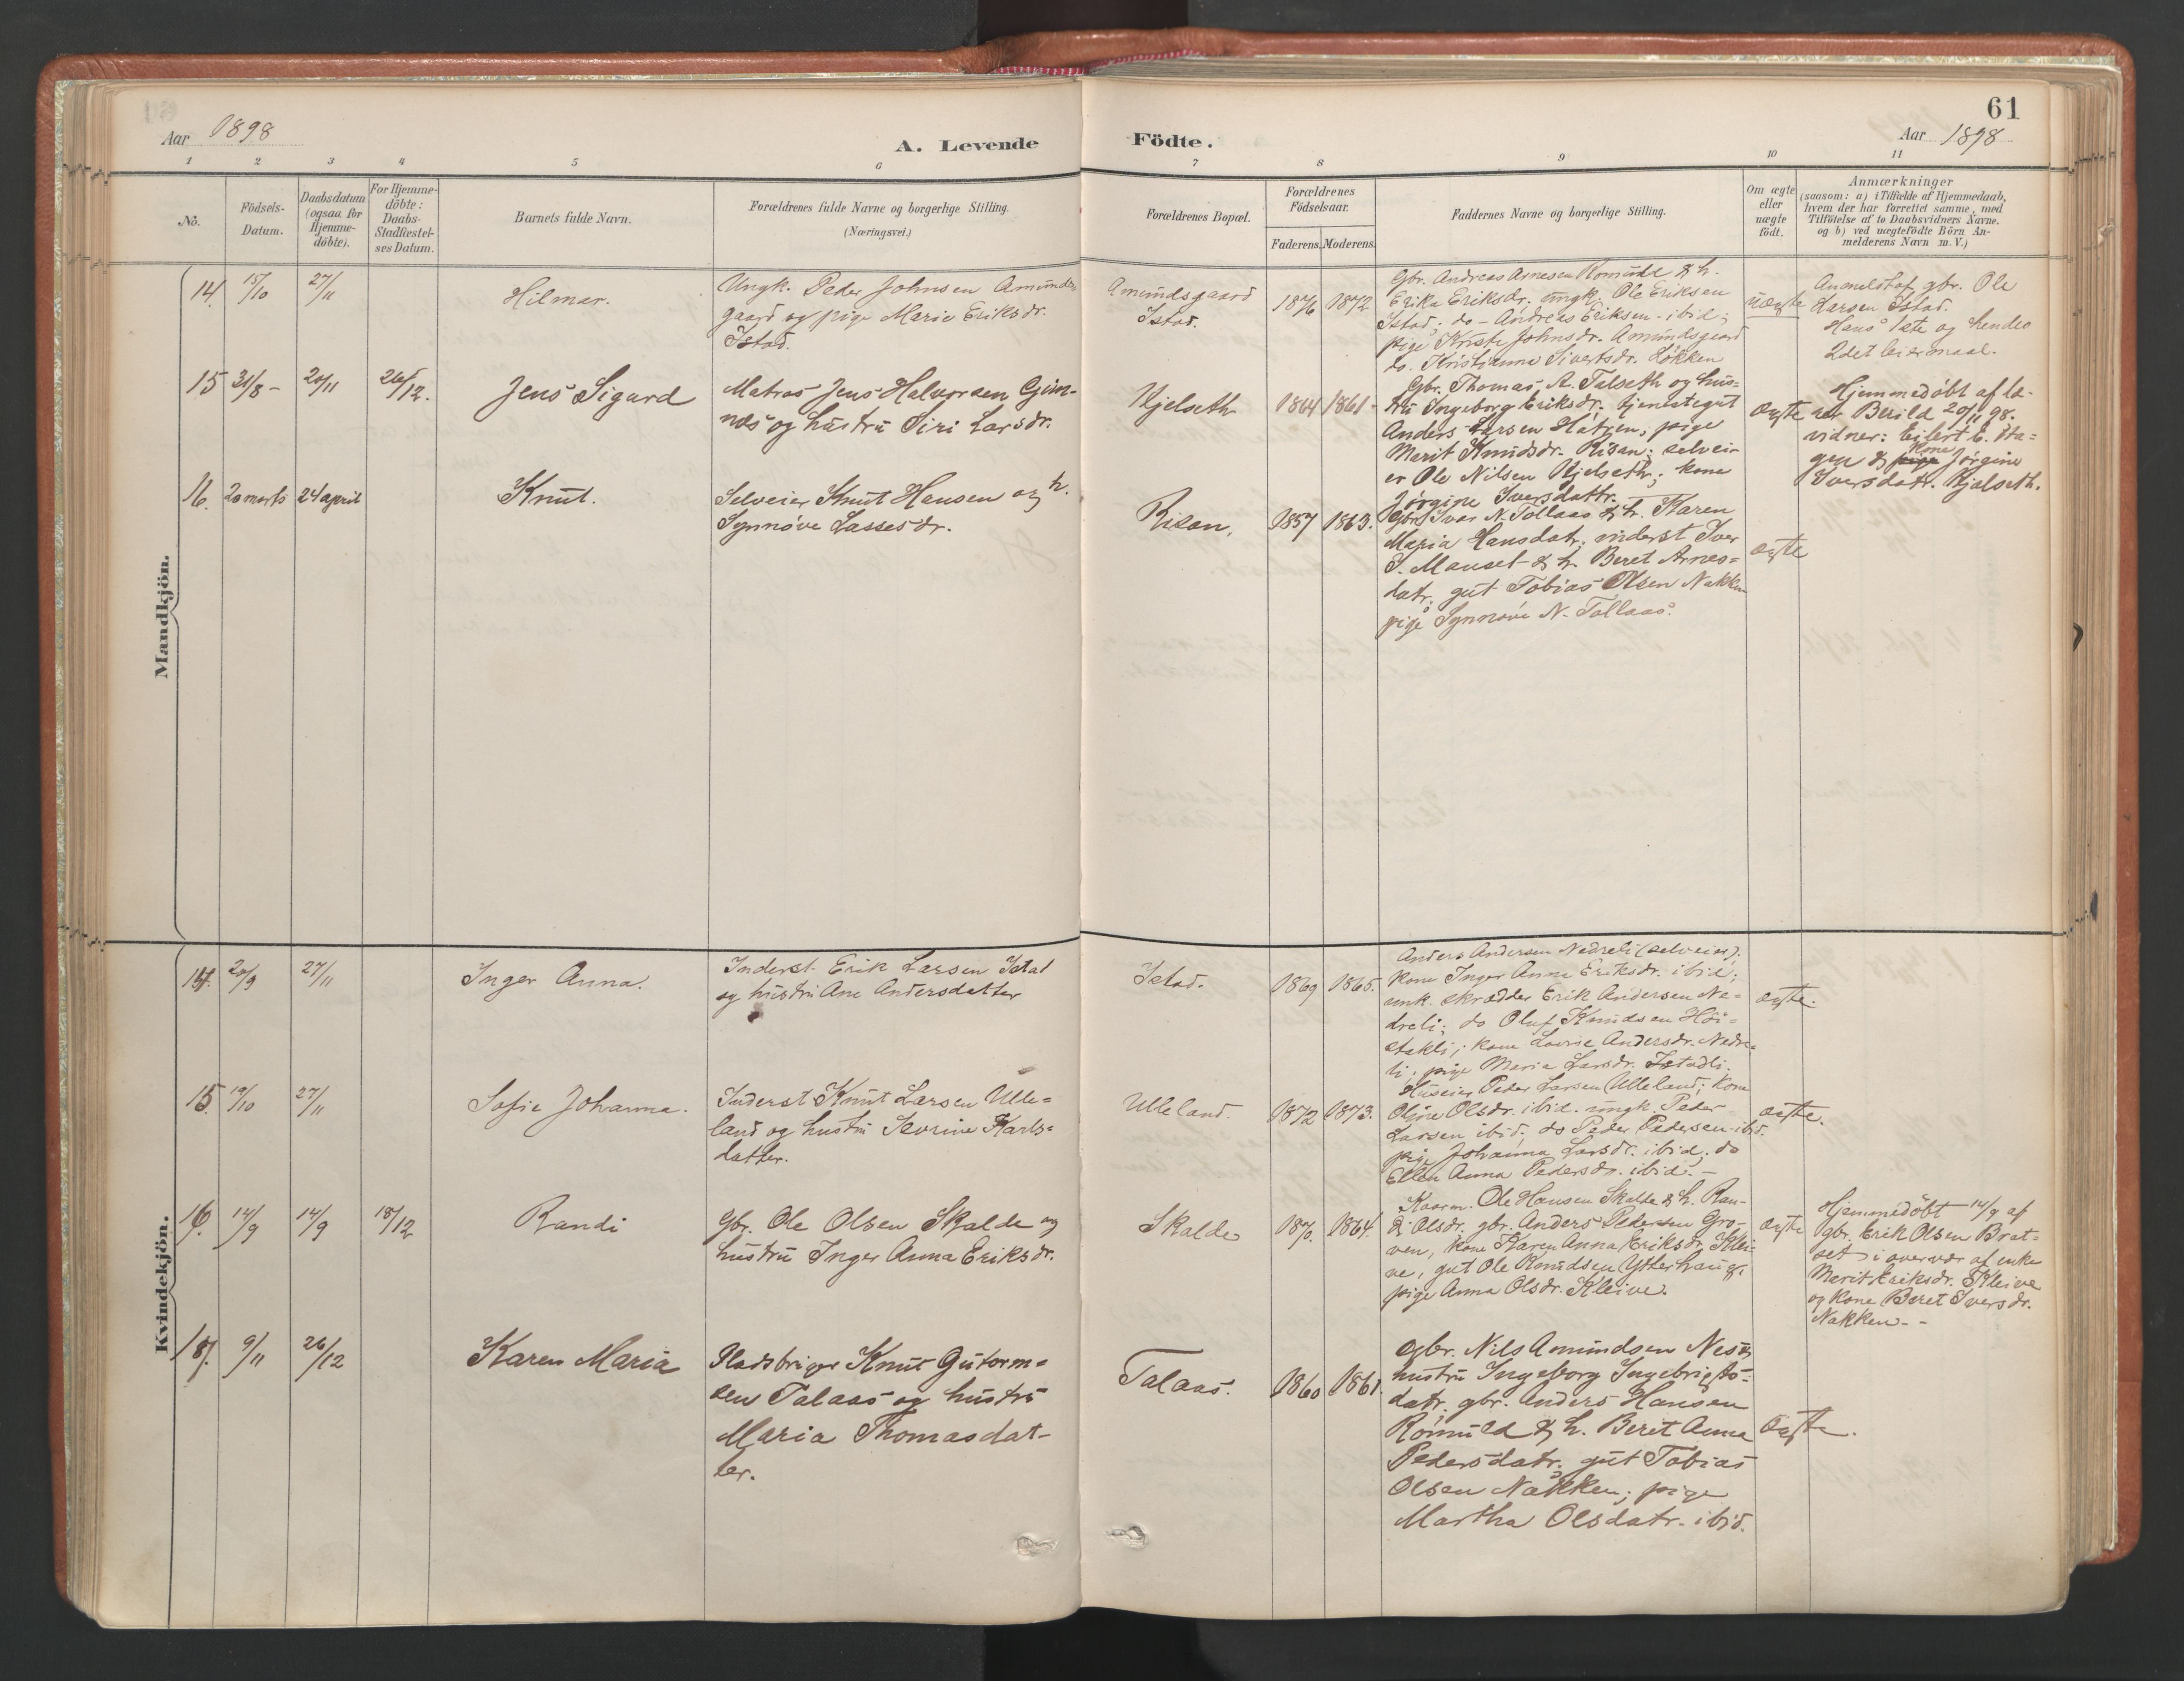 61
Aar 1898
A. Levende Födte.
Aar 1898
1 2 3 4 5 6 7 8 9 10 11
No.
Födsels-Datum.
Daabsdatum (ogsaa for Hjemme-döbte).
For Hjemme-döbte: Daabs-Stadfæstel-ses Datum.
Barnets fulde Navn.
Forældrenes fulde Navne og borgerlige Stilling.
(Næringsvei.)
Forældrenes Bopæl.
Forældrenes Födselsaar.
Faderens. Moderens.
Faddernes Navne og borgerlige Stilling.
Om ægte eller uægte födt.
Anmærkninger
(saasom: a) i Tilfælde af Hjemmedaab,
hvem der har forrettet samme, med
Tilföielse af to Daabsvidners Navne.
og b) ved uægtefödte Börn An-
melderens Navn m. V.)
Mandkjön.
14. 15/10 27/11
Hilmar.
Ungk. Peder Johnsen Amunds-
gaard og pige Marie Eriksdr.
Istad.
Amundsgaard
Istad.
1876 1872
Gbr. Andreas Arnesen Romuld & h.
Erika Eriksdr. ungk. Ole Eriksen
Istad; do - Andreas Eriksen - ibid;
pige Kristi Johnsdr. Amundsgaard
do. Kristianna Sivertsdr. Løkken
uægte
Anmeldt af gbr. Ole
Larsen Istad.
Hans 1ste og hendes
2det leiermaal.
15 31/8 - 20/11 26/12.
Jens Sigurd
Matros Jens Halvorsen Gjim-
næs og hustru Siri Larsdr.
Kjelseth
1864 1861 -
Gbr. Thomas A. Talseth og hus-
tru Ingeborg Eriksdr. tjenestegut
Anders Larsen Hatgen; pige
Marit Knudsdr. Risan; selvei-
er Ole Nilsen Kjelseth; kone
Jørgine Iversdattr.
ægte
Hjemmedøbt af læ-
rer Berild 20/11 98.
vidner: Eilert E. Ha-
gen & kone Jørgine
Iversdatr. Kjelseth.
16. 20 marts 24 april
Knut.
Selveier Knut Hansen og h.
Synnøve Lassesdr.
Risan.
1857 1863.
Gbr. Ivar N. Tollaas & h. Karen
Maria Hansdatr; inderst Iver
S. Mauset & h. Beret Arnes-
datr. gut Tobias Olsen Nakken
pige Synnøve N. Tollaas.
ægte
Kvindekjön.
14. 20/9 27/11
Inger Anna.
Inderst Erik Larsen Istad
og hustru Ane Andersdatter
Istad.
1869 1865.
Anders Andersen Nedreli (selveier);
kone Inger Anne Eriksdr. ibid;
enk. skrædder Erik Andersen Ne-
dreli; do Oluf Knudsen Høi-
stakli; kone Lovise Andersdr. Nedre-
li; pige Maria Larsdr. Istadli.
ægte.
15. 19/10 27/11
Sofie Johanna.
Inderst Knut Larsen Ulle-
land og hustru Severine Karls-
datter.
Ulleland.
1872 1873.
Huseier Peder Larsen Ulleland; kone
Oline Olsdr. ibid. ungk. Peder
Larsen ibid; do Peder Pedersen ibid.
pige Johanna Larsdr. ibid; do
Ellen Anna Pedersdr. ibid. -
ægte.
16. 14/9 14/9 18/12
Randi
Gbr. Ole Olsen Skalde og
hustru Inger Anna Eriksdr.
Skalde
1870. 1864.
Kaarm. Ole Hansen Skalde & h. Ran-
di Olsdr. gbr. Anders Pedersen Gro-
ven, kone Karen Anna Eriksdr. Klei-
ve, gut Ole Knudsen Ytterhaug,
pige Anna Olsdr. Kleive.
ægte
Hjemmedøbt 14/9 af
gbr. Erik Olsen Brat-
set i overvær af enke
Marit Eriksdr. Kleive
og kone Beret Iversdr.
Nakken. -
18/. 9/11 26/12
Karen Maria
Pladsbruger Knut Gutorm-
sen Talaas og hustru
Maria Thomasdat-
ter.
Talaas.
1860 1861.
Gbr. Nils Amundsen Nes &
hustru Ingeborg Ingebrigts-
datr, gbr. Anders Hansen
Romuld & h. Berit Anna
Pedersdatr. gut Tobias
Olsen Nakken; pige
Martha Olsdatr. ibid.
ægte.